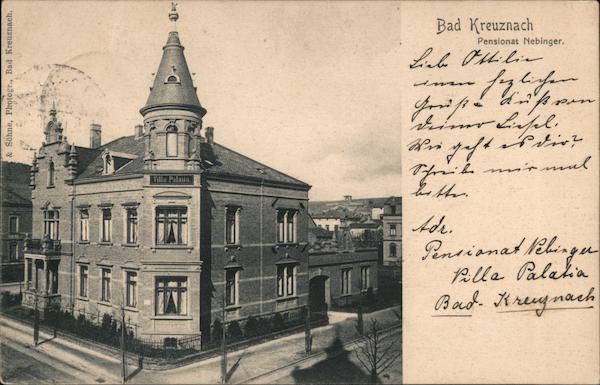 Bad Kreuznach
Pensionat Nebinger.
Liebe Ottilie
einen herzlichen
Gruß u Kuß von
deiner Liesel.
Wie geht es dir?
Schreibe mir mal
bitte.
Adr.
Pensionat Nebinger
Villa Palatia
Bad-Kreuznach
Villa Palatia
& Söhne, Photogr., Bad Kreuznach.